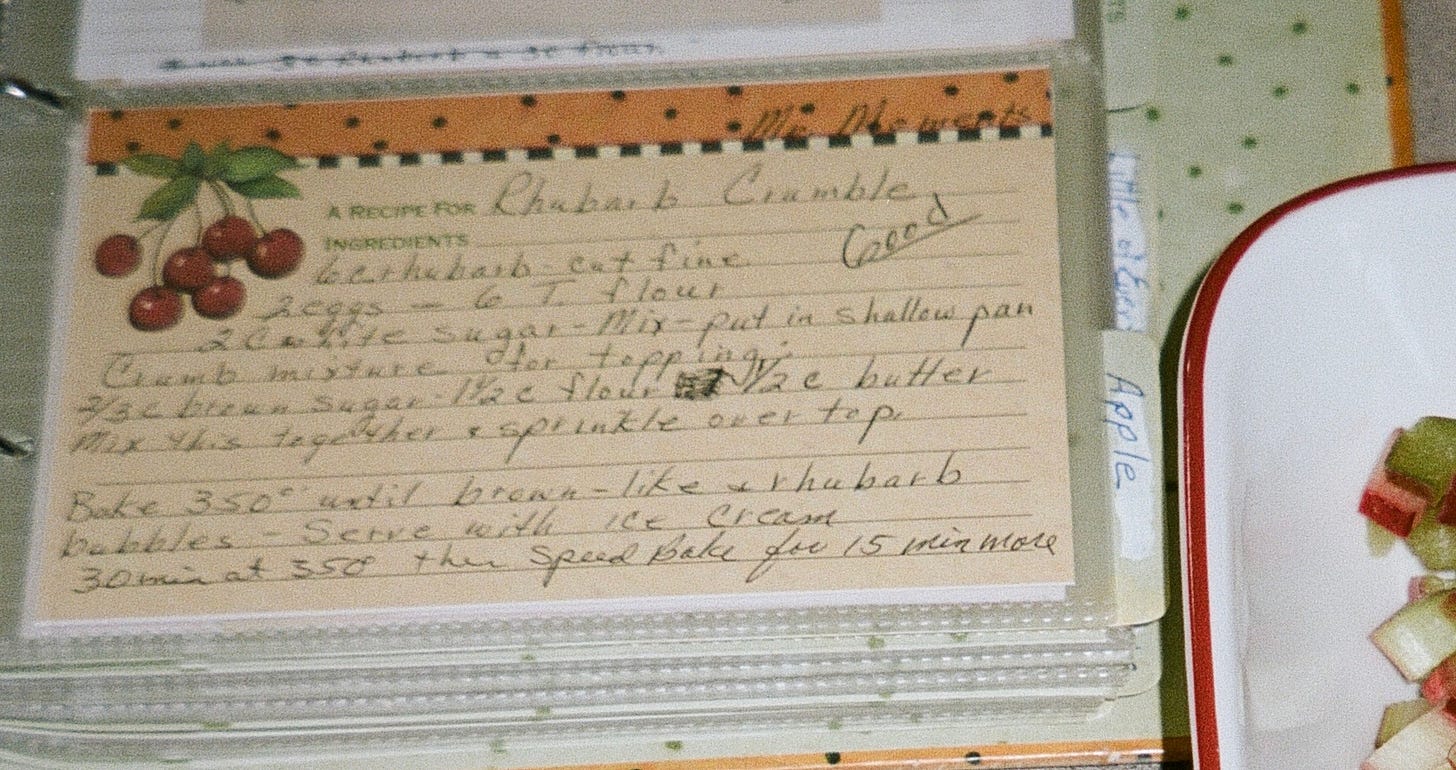 TS
A RECIPE FOR Rhubarb Crumble
Good
INGREDIENTS
6c rhubarb - cut fine
2 eggs - 6 T. flour
2 C white sugar - Mix - put in shallow pan
Crumb mixture for topping:
2/3 c brown sugar - 1 1/2 c flour 1/2 c butter
Mix this together & sprinkle over top.
Bake 350° until brown-like & rhubarb
bubbles - Serve with ice cream
30 min at 350° then Speed Bake for 15 min more
Little of
Apple